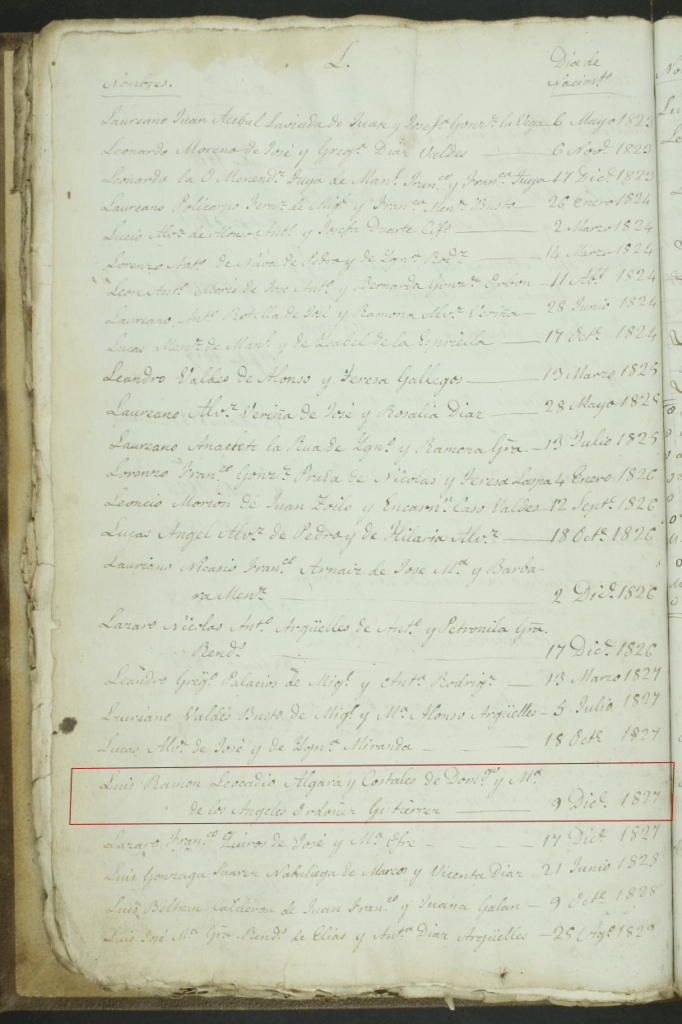 L.
Nombres.
Dia de
Nacimto
Laureano Juan Acebal Laviada de Juan y Josefa Gonzz la Vega 6 Mayo 1823
Leonardo Moreno de José y Gregª Diaz Valdes 6 Novre 1823
Leonardo la O Menendz Tuya de Manl Franco y Franca Tuya 17 Dice 1823
Laureano Policarpo Fernz de Migl y Franca Menz Busto 26 Enero 1824
Lucio Alvz de Alonso Antº y Josefa Duarte 2 Marzo 1824
Lorenzo Antº de Nava de Pedro y de Ygnª Rodz 14 Marzo 1824
Leon Antº de José Antº y Bernarda Gonzz 11 Abl 1824
Laureano Antº Rotella de José y Ramona Alvz Veriña 28 Junio 1824
Lucas Menz de Manl y de Ysabel de la Espriella 17 Octe 1824
Leandro Valdes de Alonso y Teresa Gallegos 13 Marzo 1825
Laureano Alvz Veriña de José y Rosalia Diaz 28 Mayo 1825
Laureano Anacleto la Rua de Ygnº y Ramona Gªa 13 Julio 1825
Lorenzo Franco Gonzz Prada de Nicolas y Teresa 4 Enero 1826
Leoncio Morion de Juan Zoilo y Encarnn Caso Valdes 12 Septe 1826
Lucas Angel Alvz de Pedro y de Hilaria Alvz 18 Octe 1826
Lauriano Nicasio Franco Arnaiz de Jose Mª y Barba-
ra Menz 2 Dice 1826
Lazaro Nicolas Antº Argüelles de Antº y Petronila Gªa
Rends 17 Dice 1826
Leandro Gregº Palacios de Migl y Antª Rodrigz 13 Marzo 1827
Lauriano Valdés Busto de Migl y Mª Alonso Argüelles 5 Julio 1827
Lucas Alvz de José y de Ygnª Miranda 18 Octe 1827
Luis Ramon Leocadio Algara y Costales de Domigo y Mª
de los Angeles Ordoñez Gutierrez 9 Dice 1827
Lazaro Franco Quiros de José y Mª 17 Dice 1827
Luis Gonzaga Suarez Nabaliega de Marcos y Vicenta Diaz 21 Junio 1828
Luis Beltran Calderon de Juan Franco y Juana Galan 9 Octe 1828
Luis José Mª Gªa Rends de Elías y Antª Diaz Argüelles 25 Agº 1829